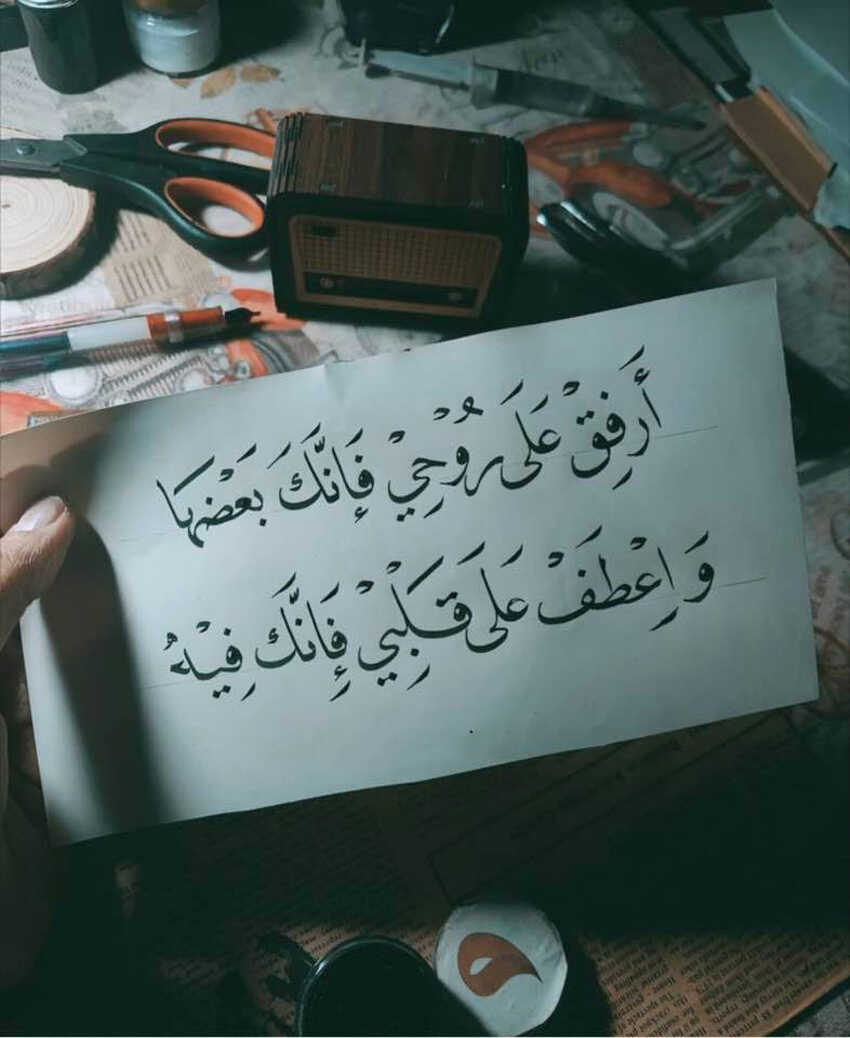 أَرفِقْ عَلَى رُوْحِيْ فَإِنَّكَ بَعَضْهَا
وَاِعْطَفْ عَلَىَ قَلْبِيْ فَإِنَّكَ فِيْهُ